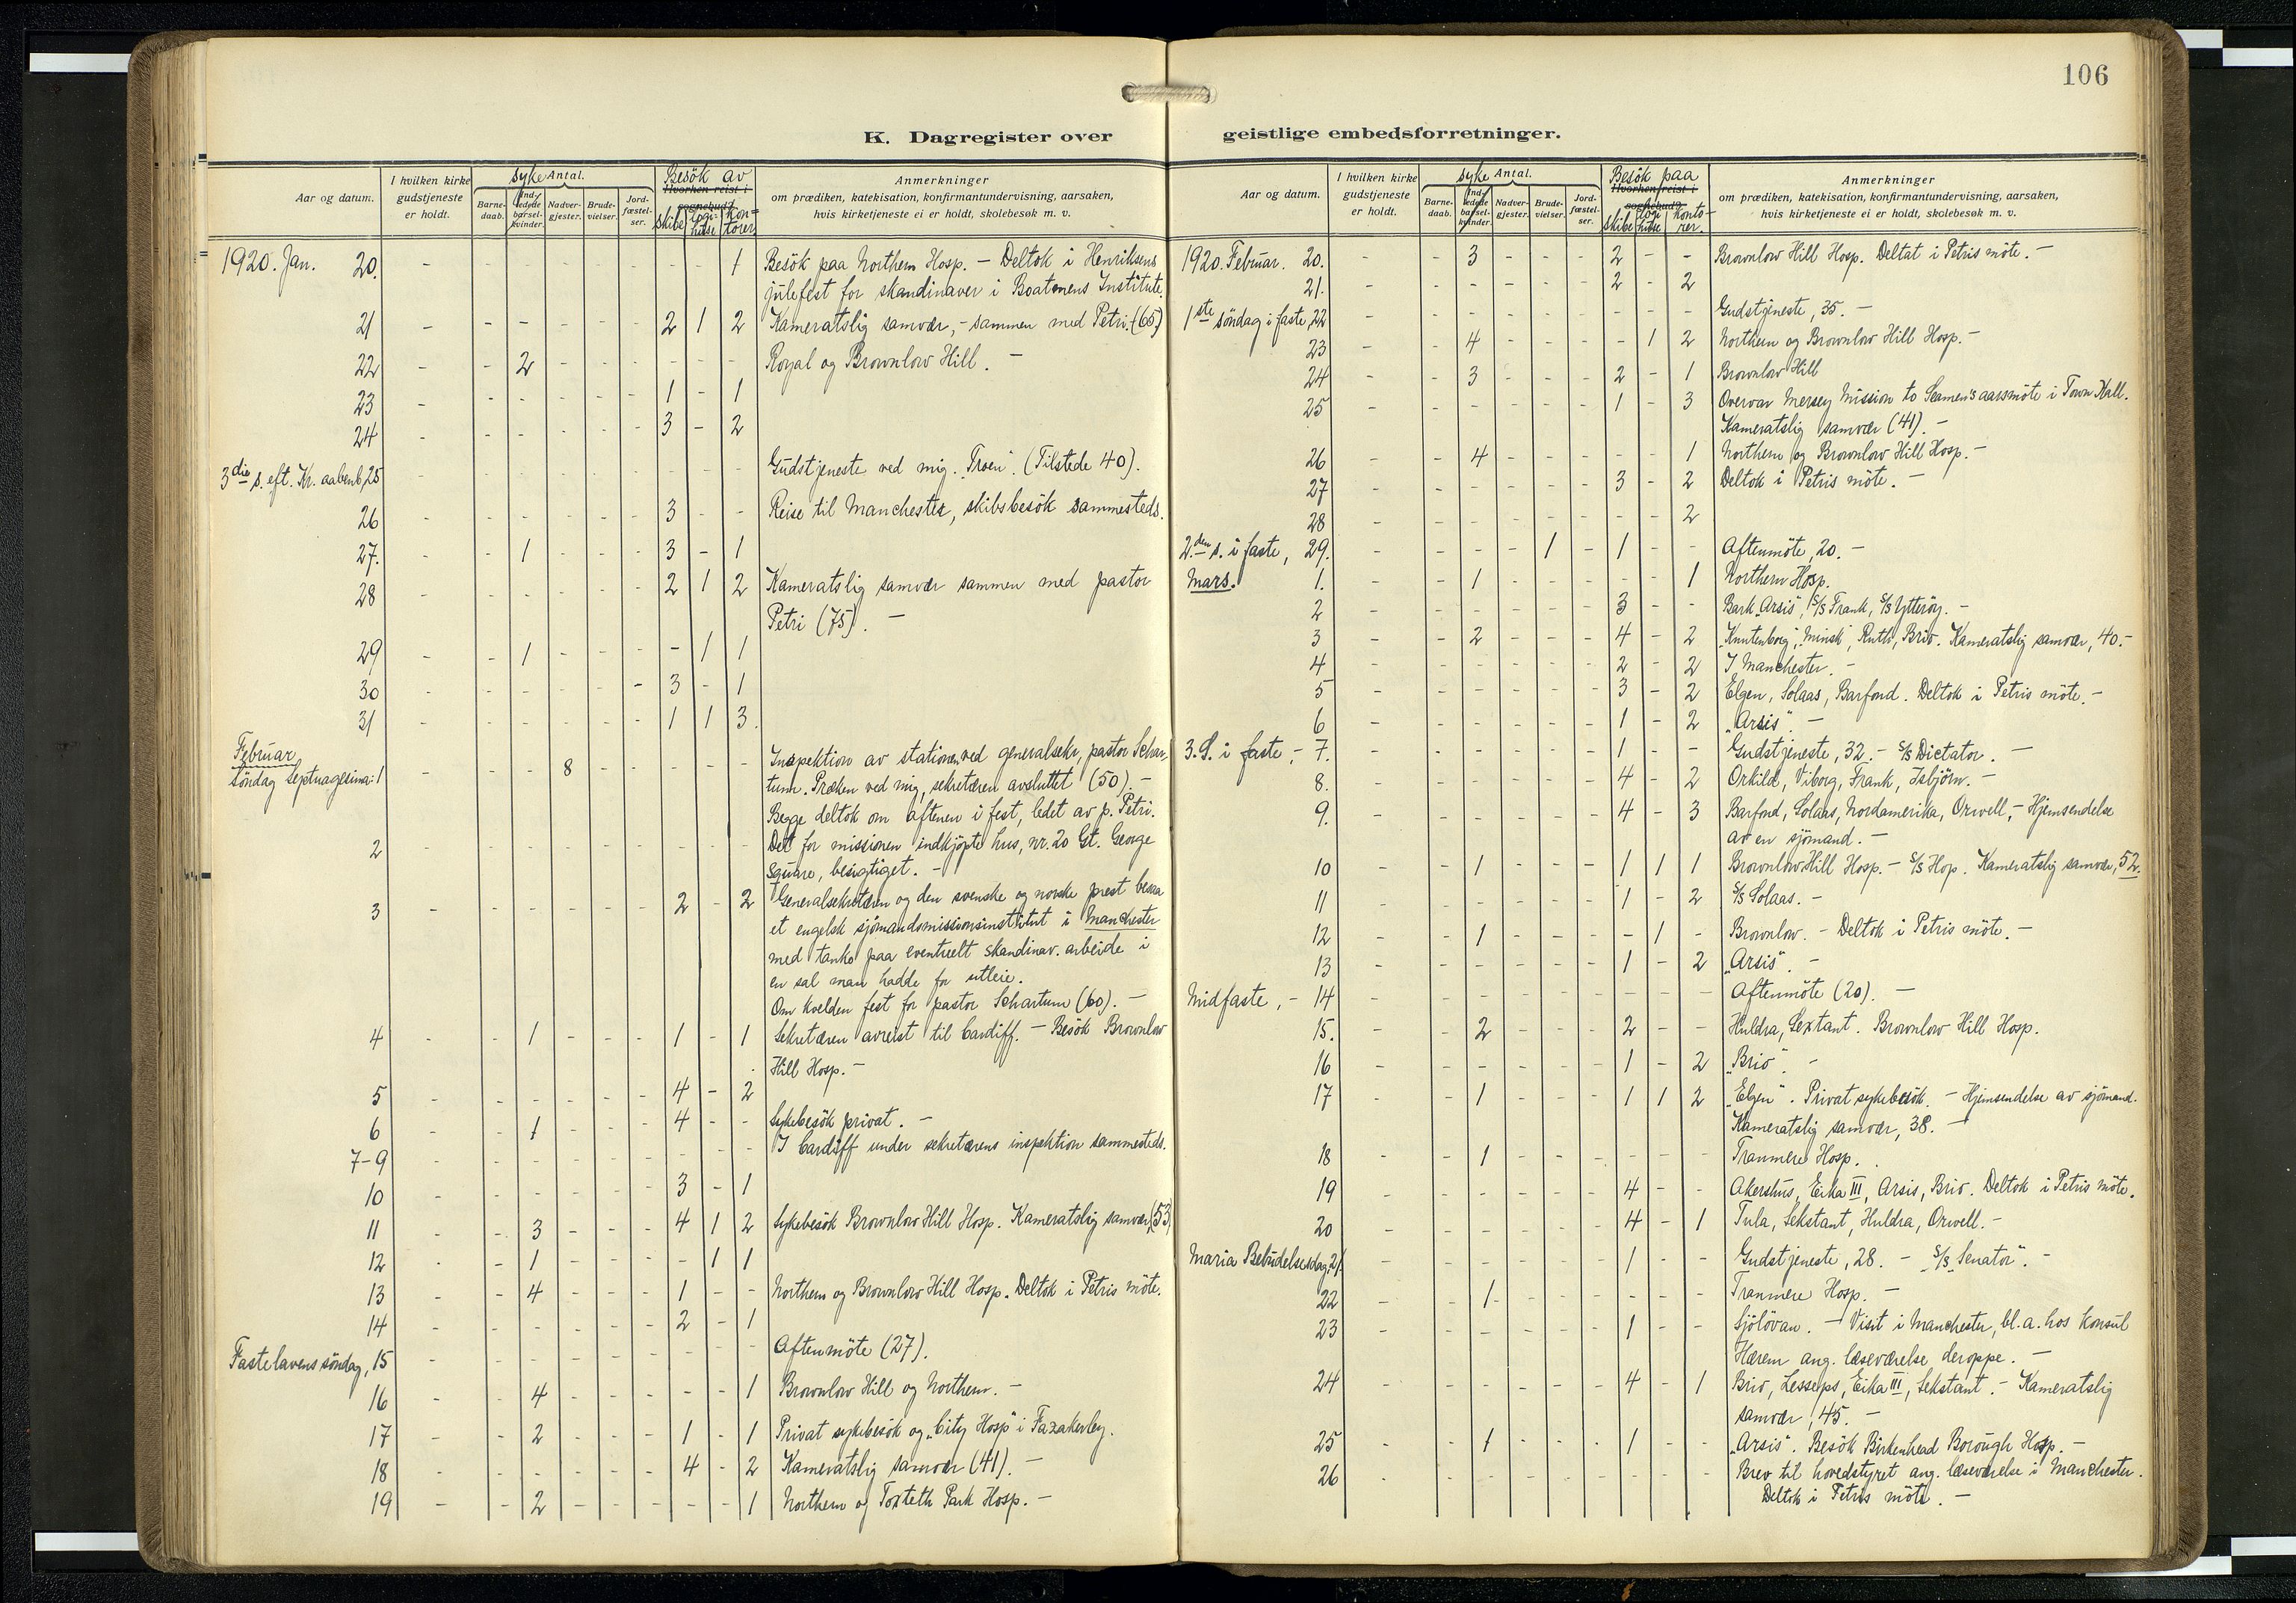 106
K. Dagregister over
Aar og datum.
I hvilken kirke gudstjeneste er holdt.
syke Antal.
Barne-daab. Ind-ledede barsel-kvinder. Nadver-gjester. Brude-vielser. Jord-fæstel-ser.
Besök av
Hvorhen reist i sognebud?
skibe logi-huse kon-torer
Anmerkninger
om prædiken, katekisation, konfirmantundervisning, aarsaken,
hvis kirketjeneste ei er holdt, skolebesøk m. v.
1920. Jan. 20. - - - - - - - - 1 Besök paa Northern Hosp. - Deltok i Henriksens
julefest for skandinaver i Boatmens Institute.
21 - - - - - - 2 1 2 Kameratslig samvær, - sammen med Petri. (65)
22 - - 2 - - - - - - Royal og Brownlow Hill. -
23 - - - - - - 1 - 1
24 - - - - - - 3 - 2
3die s. eft. Kr. aabenb, 25 - - - - - - - - - Gudstjeneste ved mig. "Troen". (Tilstede 40).
26 - - - - - - 3 - - Reise til Manchester, skibsbesök sammesteds.
27. - - 1 - - - 3 - 1
28 - - - - - - 2 1 2 Kameratslig samvær sammen med pastor
Petri (75). -
29 - - 1 - - - - 1 1
30 - - - - - - 3 - 1
31 - - - - - - 1 1 3.
Februar
söndag Septuagesima: 1 - - - 8 - - - - - Inspektion av stationen ved generalsekr, pastor Schar-
tum. Præken ved mig, sekretæren avsluttet (50). -
Begge deltok om aftenen i fest, ledet av p. Petri.
2 - - - - - - - - - Det for missionen indkjøpte hus, nr. 20 Gt. George
Square, besigtiget. -
3 - - - - - - 2 - 2 Generalsekretæren og den svenske og norske prest besaa
et engelsk sjömandsmissionsinstitut i Manchester
med tanke paa eventuelt skandinav. arbeide i
en sal man hadde for utleie.
Om kvelden fest for pastor Schartum (60). -
4 - - 1 - - - 1 - 1 Sekretæren avreist til Cardiff. - Besök Brownlow
Hill Hosp. -
5 - - - - - - 4 - 2
6 - - 1 - - - 4 - - Sykebesök privat. -
7-9 - - - - - - - - - I Cardiff under sekretærens inspektion sammesteds.
10 - - - - - - 3 - 1
11 - - 3 - - - 4 1 2 Sykebesök Brownlow Hill Hosp. Kameratslig samvær, (53)
12 - - 1 - - - - 1 1
13 - - 4 - - - 1 - - Northern og Brownlow Hill Hosp. Deltok i Petris möte.
14 - - - - - - 2 - 1
Fastelavens söndag, 15 - - - - - - - - - Aftenmöte (27).
16 - - 4 - - - - - 1 Brownlow Hill og Northern. -
17 - - 2 - - - 1 - 1 Privat sykebesök og "City Hosp" i Fazakerley.
18 - - - - - - 4 - 2 Kameratslig samvær (41). -
19 - - 2 - - - - - 1 Northern og Toxteth Park Hosp. -
geistlige embedsforretninger.
Aar og datum.
I hvilken kirke gudstjeneste er holdt.
syke Antal.
Barne-daab. Ind-ledede barsel-kvinder. Nadver-gjester. Brude-vielser. Jord-fæstel-ser.
Besök paa
Hvorhen reist i sognebud?
skibe logi huse konto-rer.
Anmerkninger
om prædiken, katekisation, konfirmantundervisning, aarsaken,
hvis kirketjeneste ei er holdt, skolebesøk m. v.
1920. Februar. 20. - - 3 - - - 2 - - Brownlow Hill Hosp. Deltat i Petris möte. -
21. - - - - - - 2 - 2
1ste söndag i faste, 22 - - - - - - - - - Gudstjeneste, 35. -
23 - - 4 - - - - 1 2 Northern og Brownlow Hill Hosp. -
24 - - 3 - - - 2 - 1 Brownlow Hill
25 - - - - - - 1 - 3 Overvar Mersey Mission to Seamen's aarsmöte i Town Hall.
Kameratslig samvær (41). -
26 - - 4 - - - - - 1 Northern og Brownlow Hill Hosp. -
27 - - - - - - 3 - 2 Deltok i Petris möte. -
28 - - - - - - - - 2
2.den s. i faste, 29. - - - - 1 - 1 - - Aftenmöte, 20. -
Mars. 1. - - 1 - - - - - 1 Northern Hosp.
2 - - - - - - 3 - - Bark "Arsis", S/S Frank, S/S Ytteröy. -
3 - - 2 - - - 4 - 2 "Knutenborg", "Minsk", Ruth, Brio. Kameratslig samvær, 40. -
4 - - - - - - 2 - 2 I Manchester. -
5 - - - - - - 3 - 2 Elgen, Solaas, Barfond. Deltok i Petris möte. -
6 - - - - - - 1 - 2 "Arsis". -
3. S. i faste, - 7. - - - - - - 1 - - Gudstjeneste, 32. - S/S Dictator. -
8. - - - - - - 4 - 2 Orkild, Viborg, Frank, Isbjörn. -
9. - - - - - - 4 - 3 Barfond, Solaas, Nordamerika, Orwell, - Hjemsendelse
av en sjömand. -
10 - - 1 - - - 1 1 1 Brownlow Hill Hosp. - S/S Hop. Kameratslig samvær, 52.
11 - - - - - - 1 - 2 S/S Solaas. -
12 - - 1 - - - - 1 - Brownlow. - Deltok i Petris möte. -
13 - - - - - - 1 - 2 "Arsis". -
Midfaste, - 14 - - - - - - - - - Aftenmöte (20). -
15. - - 2 - - - 2 - - Huldra, Sextant. Brownlow Hill Hosp.
16 - - - - - - 1 - 2 "Brio". -
17 - - 1 - - - 1 1 2 "Elgen". Privat sykebesök. - Hjemsendelse av sjömand.
Kameratslig samvær, 38. -
18 - - 1 - - - - - - Tranmere Hosp.
19 - - - - - - 4 - - Akershus, Eika III, Arsis, Brio. Deltok i Petris möte.
20 - - - - - - 4 - 1 Tula, Sekstant, Huldra, Orwell. -
Maria Bebudelsesdag, 21. - - - - - - 1 - - Gudstjeneste, 28. - S/S "Senator". -
22 - - 1 - - - - - - Tranmere Hosp. -
23 - - - - - - 1 - - Sjölövan. - Visit i Manchester, bl. a. hos Konsul
Hærem ang. læseværelse deroppe. -
24 - - - - - - 4 - 1 Brio, Lesseps, Eika III, Sekstant. - Kameratslig
samvær, 45. -
25 - - 1 - - - 1 - - "Arsis". Besök Birkenhead Borough Hosp. -
26 - - - - - - - - - Brev til hovedstyret ang. læseværelse i Manchester.
Deltok i Petris möte. -